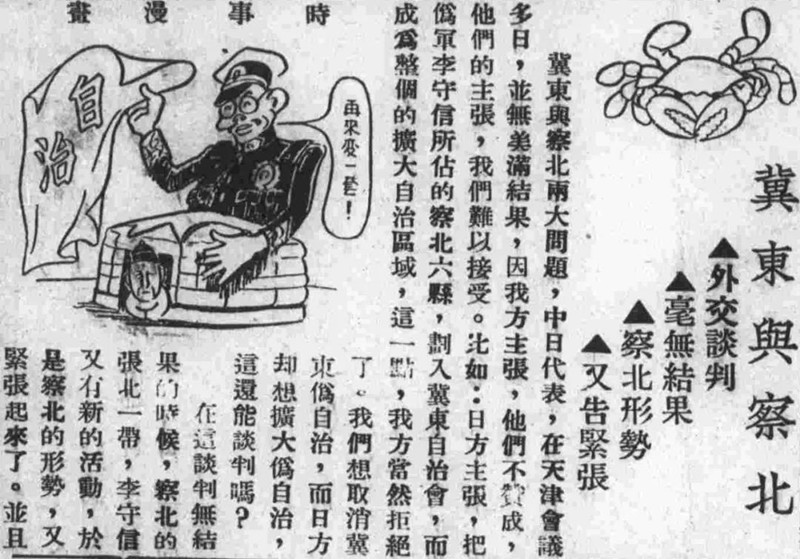 冀東與察北
▲外交談判
▲毫無結果
▲察北形勢
▲又告緊張
冀東與察北兩大問題,中日代表,在天津會議
多日,並無美滿結果,因我方主張,他們不贊成,
他們的主張,我們難以接受。比如:日方主張,把
僞軍李守信所佔的察北六縣,劃入冀東自治會,而
成爲整個的擴大自治區域,這一點,我方當然拒絕
了。我們想取消冀
東僞自治,而日方
却想擴大僞自治,
這還能談判嗎?
在這談判無結
果的時候,察北的
張北一帶,李守信
又有新的活動,於
是察北的形勢,又
緊張起來了。並且
時事漫畫
再來變一套!
自治